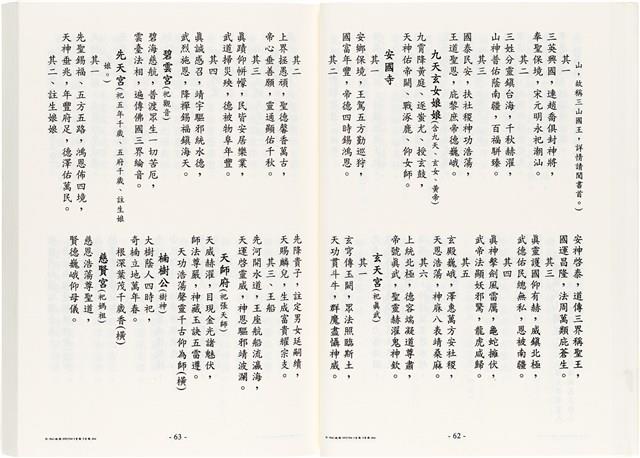 山，故稱三山國王，詳情請閱書首。)
其一
三英興國，連趙喬俱封神將，
奉聖保境，宋元明永祀潮汕。
其二
三姓分靈鎮台海，千秋赫濯，
山神普佑蔭南疆，百福駢臻。
其三
國泰民安，扶社稷神功浩蕩，
王道聖恩，庇黎庶帝德巍峨。
九天玄女娘娘(含九天、玄女、黃帝)
九霄降黃庭，逐蚩尤、授玄鼓，
天神佑帝闕、戰涿鹿、仰女師。
安國寺
其一
安鄉保境，王駕五方勤巡狩，
國富年豐，帝德四時錫鴻恩。
其二
安神啓泰，道傳三界稱聖王，
國運昌隆，法周萬類庇蒼生。
其三
真靈護國仰有赫，威鎮北極，
武德佑民總無私，恩被南疆。
其四
真神擊劍風雷厲，龜蛇擁伏，
武帝法顯妖邪驚，龍虎咸歸。
其五
玄殿巍峨，澤惠萬方安社稷，
天恩浩蕩，神麻八表靖桑麻。
其六
上統北極，德容端凝道尊肅，
帝號真武，聖靈赫濯鬼神欽。
玄天宮(祀真武)
其一
玄穹傳玉闕，眾法照臨斯土，
天功貫斗牛，群魔盡懾神威。
- 62 -
其二
上界拯愚頑，聖德馨香萬古，
帝心垂善願，靈通顯佑千秋。
其三
真蹟仰帡幪，民皆安居樂業，
武道掃災殃，德被物阜年豐。
其四
真誠感召，靖宇驅邪統永德，
武烈施恩，降禪錫福鎮海天。
碧雲宮(祀觀音)
碧海慈航，普渡眾生一切苦厄，
雲臺法相，遍傳佛國三界綸音。
先天宮(祀五年千歲、五府千歲、註生娘娘。)
其一
先聖錫福、五方五路，鴻恩佈四境，
天神垂兆，年豐府足，德澤佑萬民。
其二、註生娘娘
先降貴子，註定男女延嗣續，
天賜麟兒，生成富貴耀宗支。
其三、王船
先河開水道，王座航船流瀛海，
天運啓靈威，神恩驅邪靖波瀾。
天師府(祀張天師)
天威赫濯，目現金光諸魅伏，
師法尊嚴，神藏玉訣五雷遵。
天功浩蕩聲靈千古仰為師(橫)
楠樹公(樹神)
大樹蔭人四時祀，
奇楠立地萬年春。
根深葉茂千歲香(橫)
慈賢宮(祀媽祖)
慈恩浩蕩尊聖道，
賢德巍峨仰母儀。
- 63 -